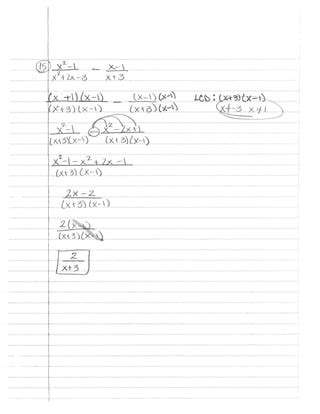 15) (x²-1)/(x²+2x-3) - (x-1)/(x+3)
((x+1)(x-1))/((x+3)(x-1)) - ((x-1)(x-1))/((x+3)(x-1)) LCD: (x+3)(x-1)
x≠-3 x≠1
(x²-1)/((x+3)(x-1)) - (x²-2x+1)/((x+3)(x-1))
(x²-1-x²+2x-1)/((x+3)(x-1))
(2x-2)/((x+3)(x-1))
(2(x-1))/((x+3)(x-1))
2/(x+3)